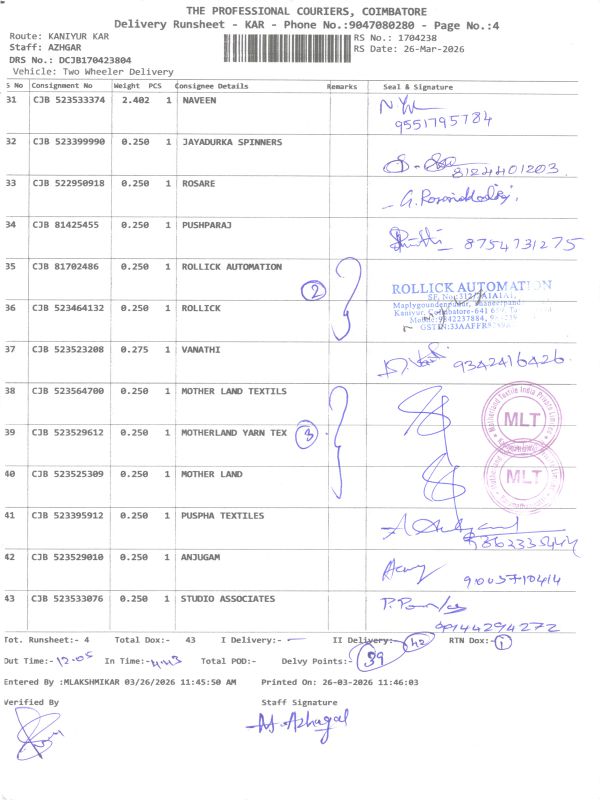 THE PROFESSIONAL COURIERS, COIMBATORE
Delivery Runsheet - KAR - Phone No.:9047080280 - Page No.:4
Route: KANIYUR KAR
Staff: AZHGAR
DRS No.: DCJB170423804
Vehicle: Two Wheeler Delivery
RS No.: 1704238
RS Date: 26-Mar-2026
S No Consignment No Weight PCS Consignee Details Remarks Seal & Signature
31 CJB 523533374 2.402 1 NAVEEN
9551795784
32 CJB 523399990 0.250 1 JAYADURKA SPINNERS
8124401203
33 CJB 522950918 0.250 1 ROSARE
34 CJB 81425455 0.250 1 PUSHPARAJ
8754731275
35 CJB 81702486 0.250 1 ROLLICK AUTOMATION
2
ROLLICK AUTOMATION
36 CJB 523464132 0.250 1 ROLLICK
37 CJB 523523208 0.275 1 VANATHI
9342416426
38 CJB 523564700 0.250 1 MOTHER LAND TEXTILS
MLT
39 CJB 523529612 0.250 1 MOTHERLAND YARN TEX
3
40 CJB 523525309 0.250 1 MOTHER LAND
MLT
41 CJB 523395912 0.250 1 PUSPHA TEXTILES
42 CJB 523529010 0.250 1 ANJUGAM
43 CJB 523533076 0.250 1 STUDIO ASSOCIATES
Tot. Runsheet:- 4 Total Dox:- 43 I Delivery:- — II Delivery:- 42 RTN Dox:- 1
Out Time:- 12.05 In Time:- 4.43 Total POD:- Delvy Points:- 39
Entered By :MLAKSHMIKAR 03/26/2026 11:45:50 AM Printed On: 26-03-2026 11:46:03
Verified By Staff Signature